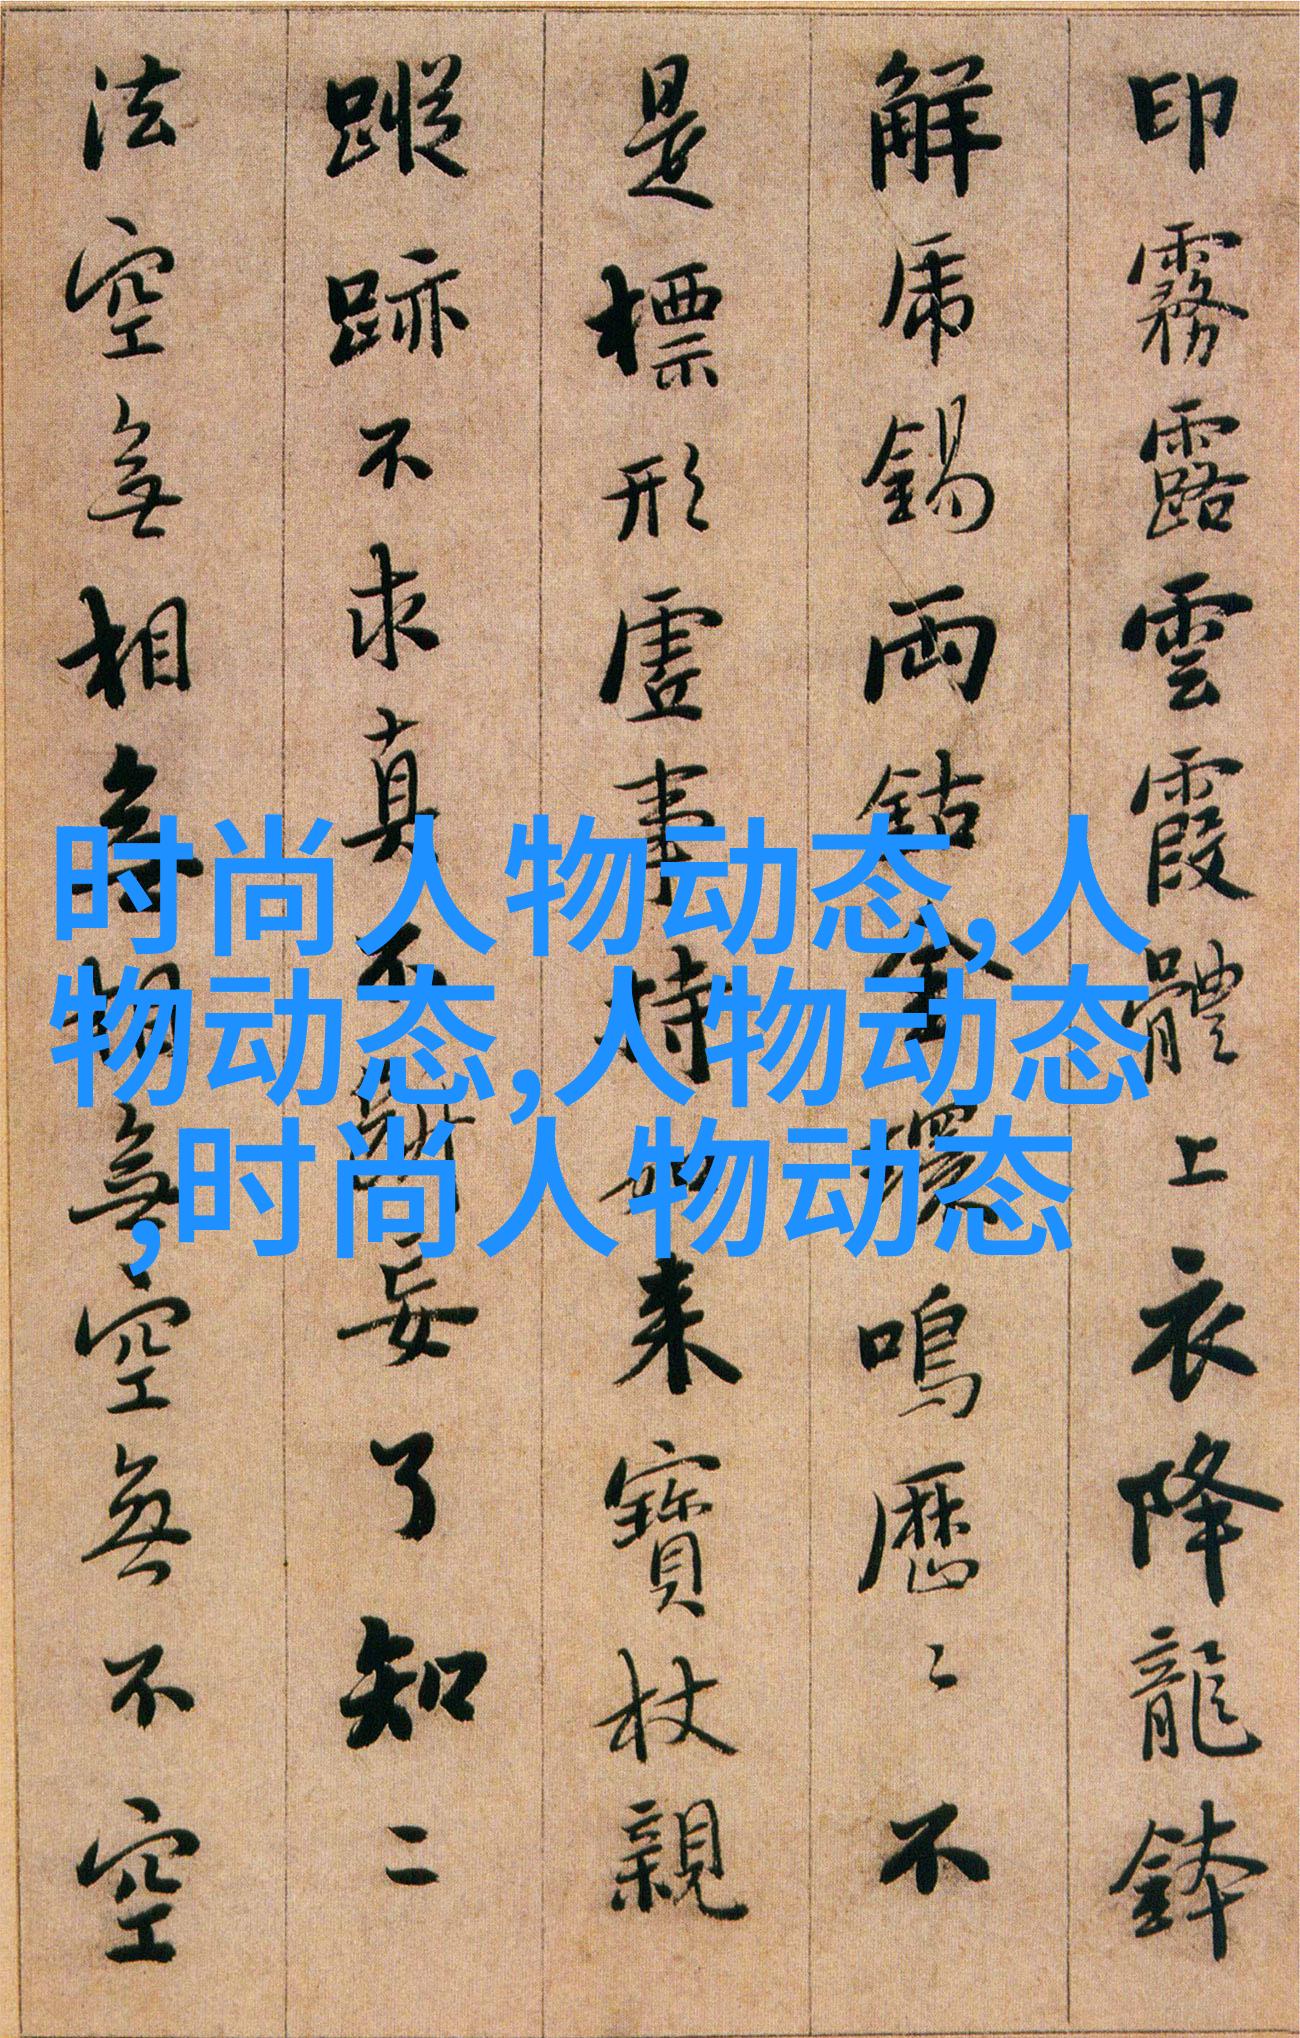 印霧露雲霞體上衣降龍鉢
解虎錫兩鈷金環鳴歷〻不
是標形虛事持如來寶杖親
蹤跡不求真不斷妄了知二
法空無相無相無空無不空
时尚人物动态,人
物动态,人物动态
,时尚人物动态